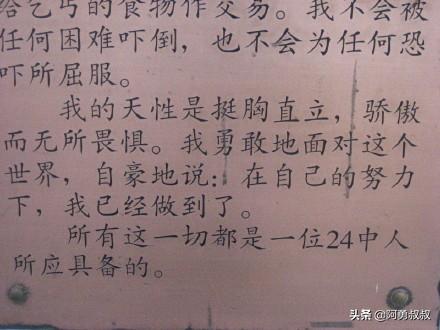 给乞丐的食物作交易。我不会被
任何困难吓倒，也不会为任何恐
吓所屈服。
我的天性是挺胸直立，骄傲
而无所畏惧。我勇敢地面对这个
世界，自豪地说：在自己的努力
下，我已经做到了。
所有这一切都是一位24中人
所应具备的。
头条 @阿勇叔叔